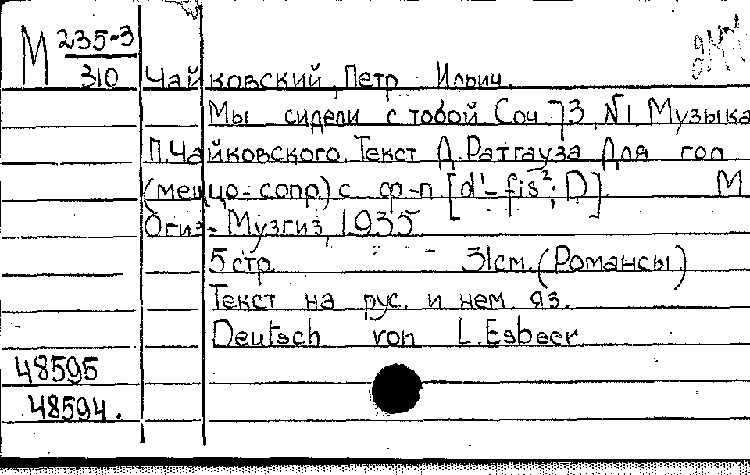 М 235-3
310
Чайковский, Петр Ильич.
Мы сидели с тобой Соч 73 №1 Музыка
П.Чайковского. Текст Д.Ратгауза Для гол
(меццо-сопр) с ф-п [d'-fis²; D]. М
Огиз-Музгиз, 1935
5 стр. 31см. (Романсы)
Текст на рус. и нем. яз.
Deutsch von L.Esbeer
48595
48594.